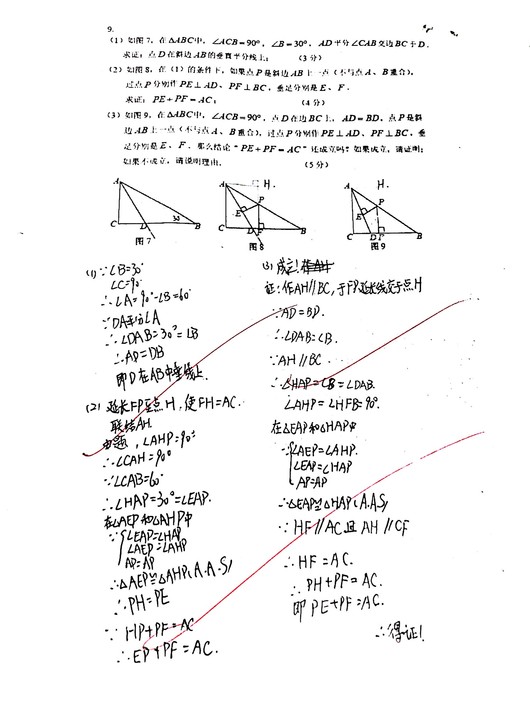 9.
(1) 如图 7，在△ABC中，∠ACB=90°，∠B=30°，AD平分∠CAB交边BC于D.
求证：点D在斜边AB的垂直平分线上；(3分)
(2) 如图 8，在（1）的条件下，如果点P是斜边AB上一点（不与点A、B重合），
过点P分别作PE⊥AD、PF⊥BC，垂足分别是E、F.
求证：PE+PF=AC；(4分)
(3) 如图 9，在△ABC中，∠ACB=90°，点D在边BC上，AD=BD，点P是斜
边AB上一点（不与点A、B重合），过点P分别作PE⊥AD、PF⊥BC，垂
足分别是E、F. 那么结论“PE+PF=AC”还成立吗？如果成立，请证明；
如果不成立，请说明理由. (5分)
A
C D B
30
图7
A H.
E P
C D F B
图8
A H.
E P
C D F B
图9
(1) ∵∠B=30°
∠C=90°
∴∠A=90°-∠B=60°
∵DA平分∠A
∴∠DAB=30°=∠B
∴AD=DB
即D在AB中垂线上.
(2) 延长FP至点H,使FH=AC.
联结AH.
由题，∠AHP=90°
∴∠CAH=90°
∵∠CAB=60°
∴∠HAP=30°=∠EAP.
在△AEP和△AHP中
∵ ∠EAP=∠HAP
∠AEP=∠AHP
AP=AP
∴△AEP≌△AHP(A.A.S)
∴PH=PE
∵HP+PF=AC
∴EP+PF=AC.
(3) 成立!
证:作AH//BC,于FP延长线交于点H
∵AD=BD.
∴∠DAB=∠B.
∵AH//BC.
∴∠HAP=∠B=∠DAB.
∠AHP=∠HFB=90°.
在△EAP和△HAP中
∵ ∠AEP=∠AHP.
∠EAP=∠HAP
AP=AP
∴△EAP≌△HAP(A.A.S)
∵HF//AC且AH//CF
∴HF=AC.
∴PH+PF=AC.
即PE+PF=AC.
∴得证!